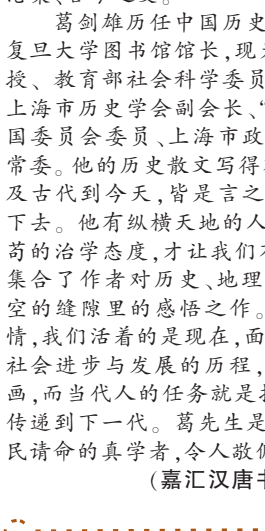 葛剑雄历任中国历史
复旦大学图书馆馆长,现为
授、教育部社会科学委员
上海市历史学会副会长、
国委员会委员、上海市政
常委。他的历史散文写得
及古代到今天,皆是言之
下去。他有纵横天地的人
苟的治学态度,才让我们
集合了作者对历史、地理
空的缝隙里的感悟之作。
情,我们活着的是现在,面
社会进步与发展的历程,
画,而当代人的任务就是
传递到下一代。葛先生是
民请命的真学者,令人敬佩
(嘉汇汉唐书